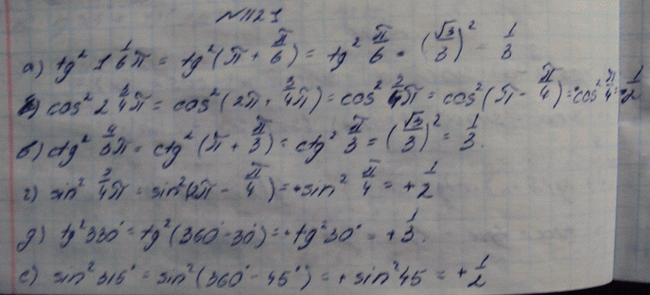 №1121
а) tg² 1 1/6 π = tg² (π + π/6) = tg² π/6 = (√3/3)² = 1/3
б) cos² 2 3/4 π = cos² (2π + 3/4 π) = cos² 3/4 π = cos² (π - π/4) = cos² π/4 = 1/2
в) ctg² 4/3 π = ctg² (π + π/3) = ctg² π/3 = (√3/3)² = 1/3.
г) sin² 3/4 π = sin² (π - π/4) = + sin² π/4 = + 1/2
д) tg² 330° = tg² (360° - 30°) = + tg² 30° = + 1/3.
е) sin² 315° = sin² (360° - 45°) = + sin² 45 = + 1/2